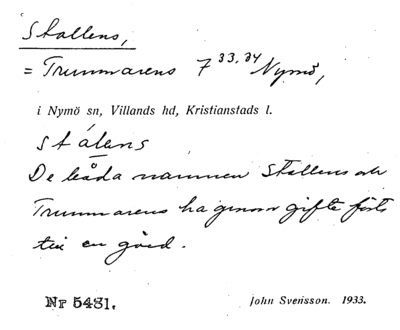 Stallens,
= Trummarens 7 33,34 Nymö,
i Nymö sn, Villands hd, Kristianstads l.
stálens
De båda namnen Stallens och
Trummarens ha genom gifte förts
till en gård.
Nr 5431.
John Svensson. 1933.